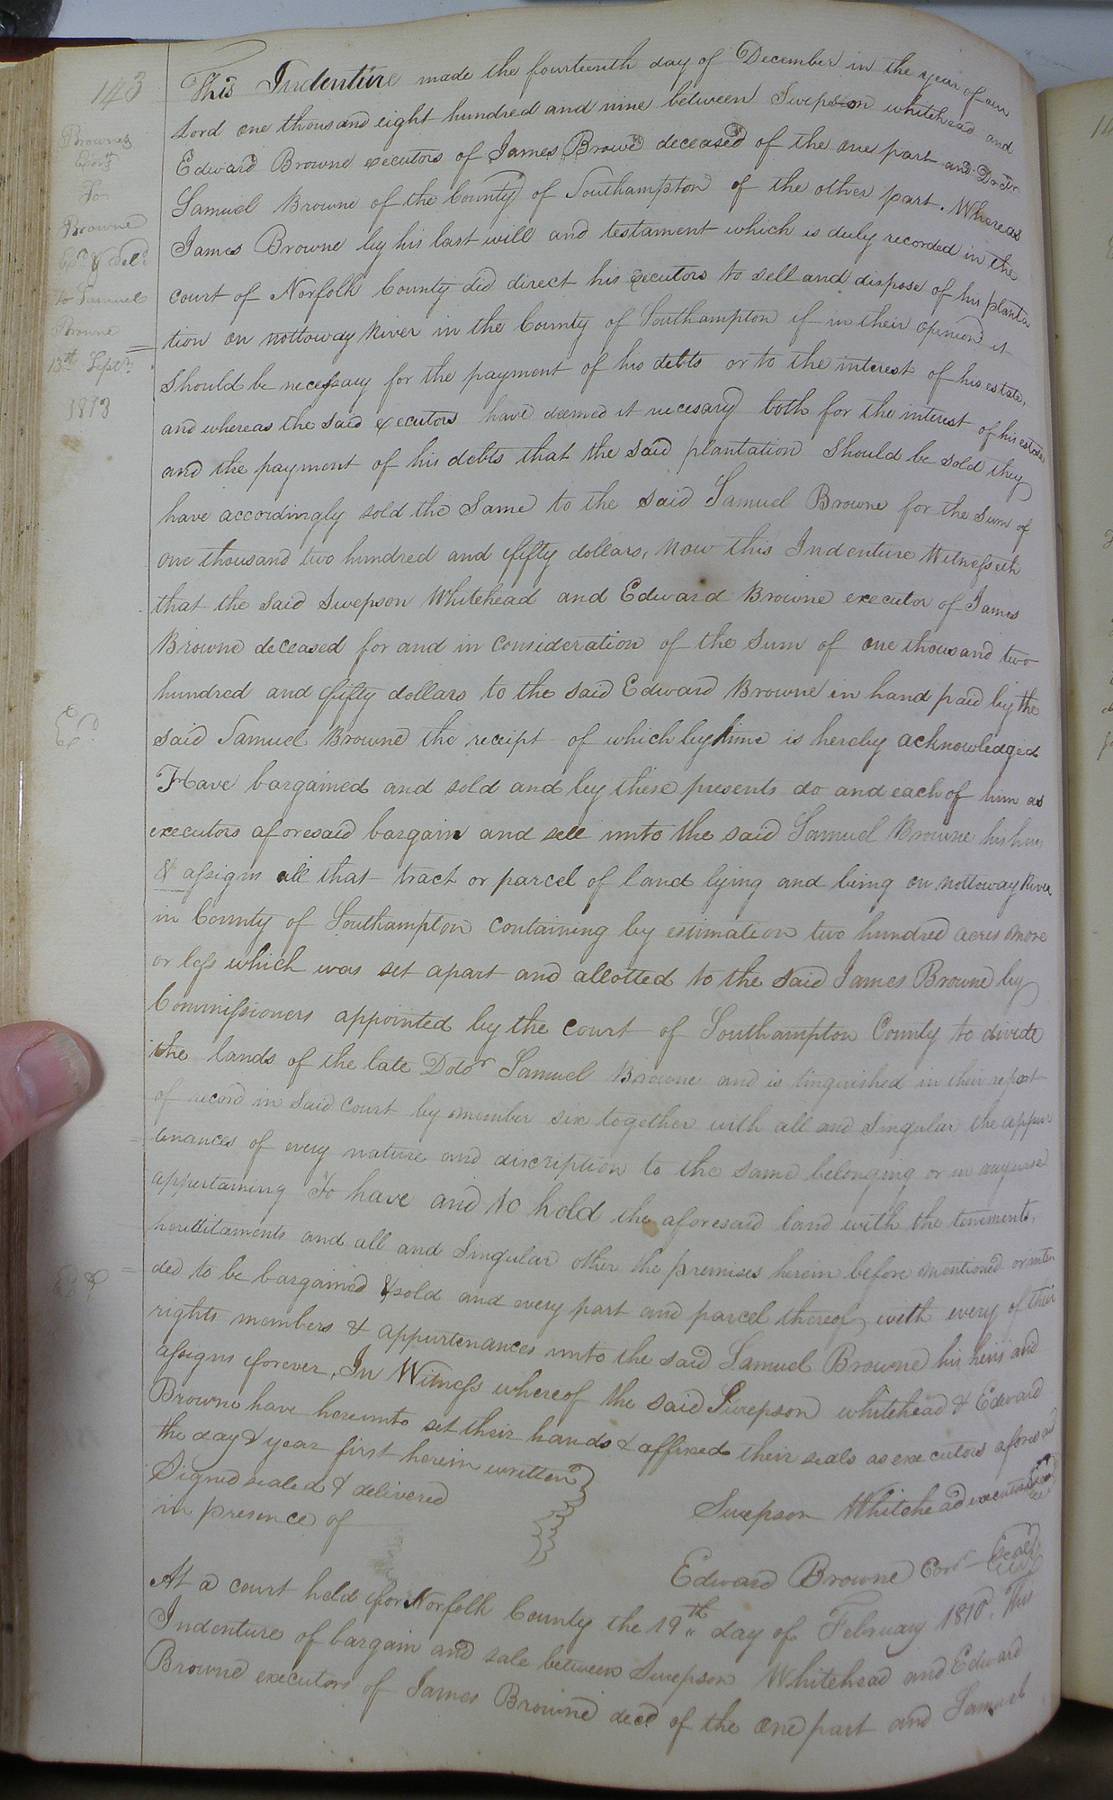 143
Browne's
Exors
To
Browne
Exd & Deld
to Samuel
Browne
13th Septr
1813
This Indenture made the fourteenth day of December in the year of our
Lord one thousand eight hundred and nine between Swepson whitehead and
Edward Browne executors of James Browe deceased of the one part and Dotr
Samuel Browne of the County of Southampton of the other part. Whereas
James Browne by his last will and testament which is duly recorded in the
court of Norfolk County did direct his executors to sell and dispose of his planta
tion on nottoway River in the County of Southampton if in their opinion it
should be necessary for the payment of his debts or to the interest of his estate,
and whereas the said executors have deemed it necesary both for the interest of his estate
and the payment of his debts that the said plantation should be sold they
have accordingly sold the same to the said Samuel Browne for the sum of
one thousand two hundred and fifty dollars, now this Indenture Witnesseth
that the said Swepson Whitehead and Edward Browne executor of James
Browne deceased for and in consideration of the sum of one thousand two
hundred and fifty dollars to the said Edward Browne in hand paid by the
said Samuel Browne the receipt of which by hime is hereby acknowledged
Have bargained and sold and by these presents do and each of him as
executors aforesaid bargain and sell unto the said Samuel Browne his heirs
& assigns all that tract or parcel of land lying and being on nottoway River
in County of Southampton containing by estimation two hundred acres more
or less which was set apart and allotted to the said James Browne by
Commissioners appointed by the court of Southampton County to divide
the lands of the late Dotor Samuel Browne and is tinguished in their report
of record in said court by number six together with all and singular the appur
tenances of every nature and discription to the same belonging or in anywise
appertaining To have and to hold the aforesaid land with the tenements,
hereditaments and all and singular other the premises herein before mentioned or inten
ded to be bargained & sold and every part and parcel thereof with every of their
rights members & appurtenances unto the said Samuel Browne his heirs and
assigns forever, In Witness whereof the said Swepson whitehead & Edward
Browne have hereunto set their hands & affixed their seals as executors aforesaid
the day & year first herein written
Signed sealed & delivered
in presence of
Swepson Whitehead executor seal
Edward Browne Exor Seal
At a court held for Norfolk County the 19th day of February 1810. This
Indenture of bargain and sale between Swepson Whitehead and Edward
Browne executors of James Browne decd of the one part and Samuel